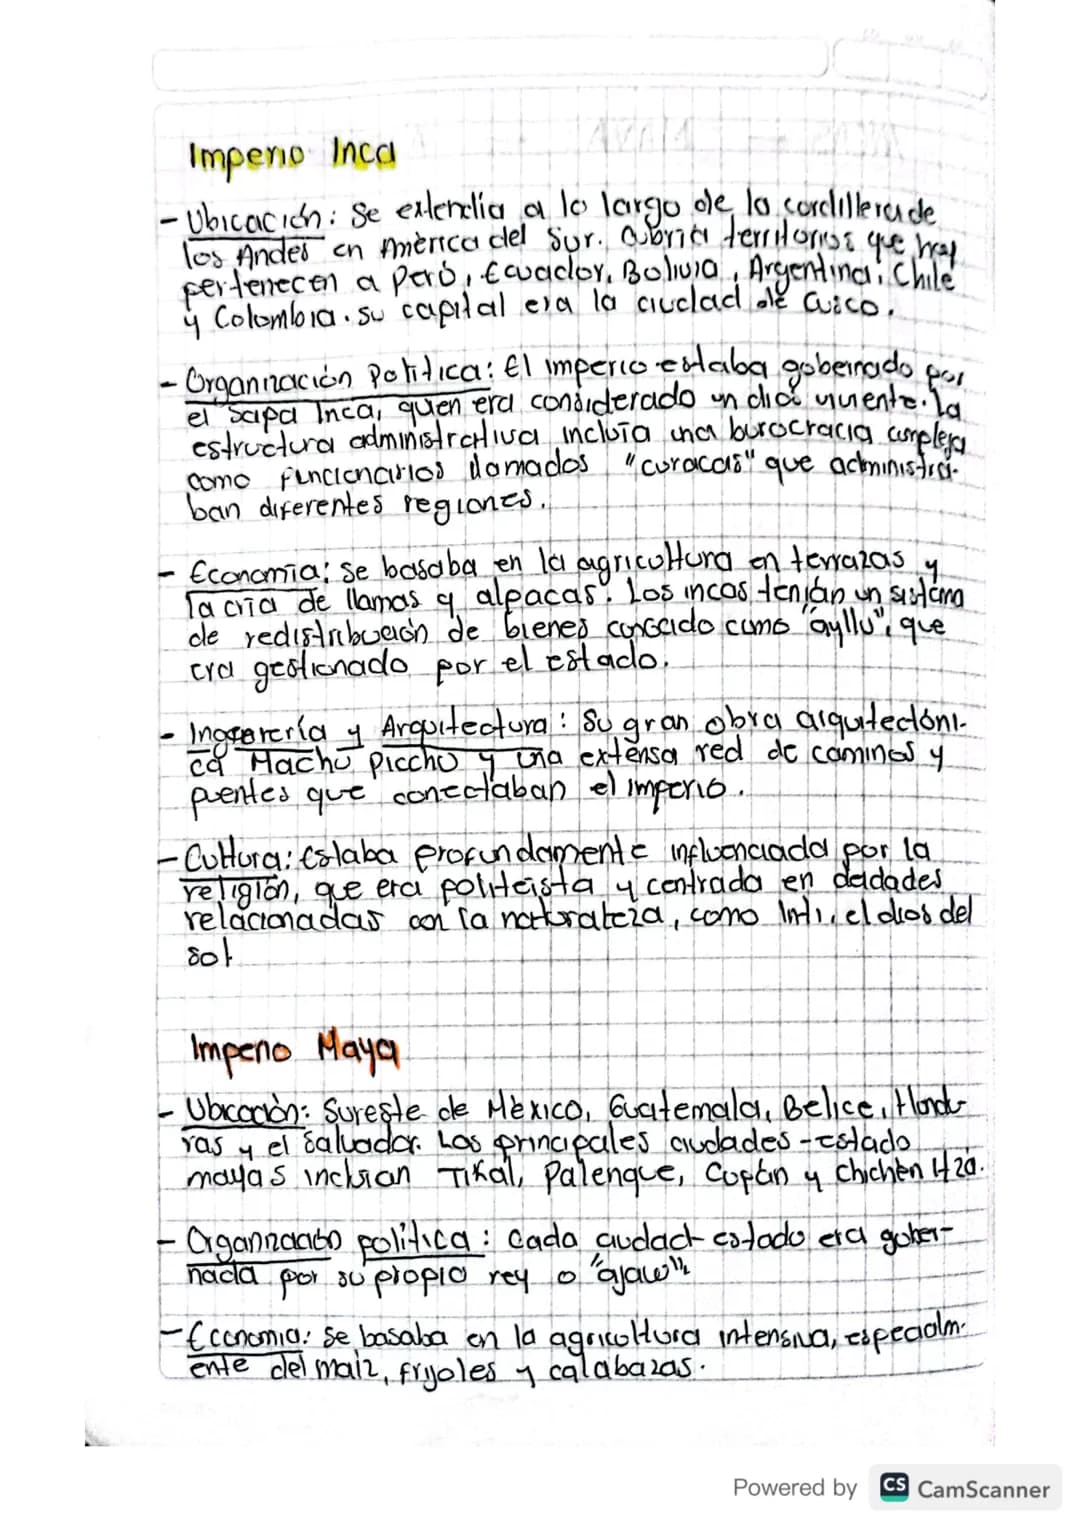 Imperio Inca
- Ubicación: Se extendía a lo largo de la cordillera de
los Andes en América del Sur. Cubría territorios que hoy
pertenecen a Perú, Ecuador, Bolivia, Argentina, Chile
y Colombia. su capital era la ciudad de Cusco.
- Organización Política: El imperio estaba gobernado por
el Sapa Inca, quien era considerado un dios viviente. La
estructura administrativa incluía una burocracia compleja
como funcionarios llamados "curacas" que administra-
ban diferentes regiones.
- Economía: Se basaba en la agricultura en terrazas y
la cría de llamas y alpacas. Los incas tenían un sistema
de redistribución de bienes conocido como "ayllu", que
era gestionado por el estado.
- Ingeniería y Arquitectura: Su gran obra arquitectóni-
ca Machu Picchu y una extensa red de caminos y
puentes que conectaban el imperio.
- Cultura: Estaba profundamente influenciada por la
religión, que era politeista y centrada en deidades
relacionadas con la naturaleza, como Inti, el dios del
sol
Imperio Maya
- Ubicación: Sureste de México, Guatemala, Belice, Hondu
ras y el Salvador. Los principales ciudades-estado
mayas incluían Tikal, Palenque, Copán y Chichén Itzá.
- Organización política: Cada ciudad estado era gober-
nada por su propio rey o "ajaw"
- Economía: Se basaba en la agricultura intensiva, especialm-
ente del maiz, frijoles y calabazas.
Powered by CS CamScanner